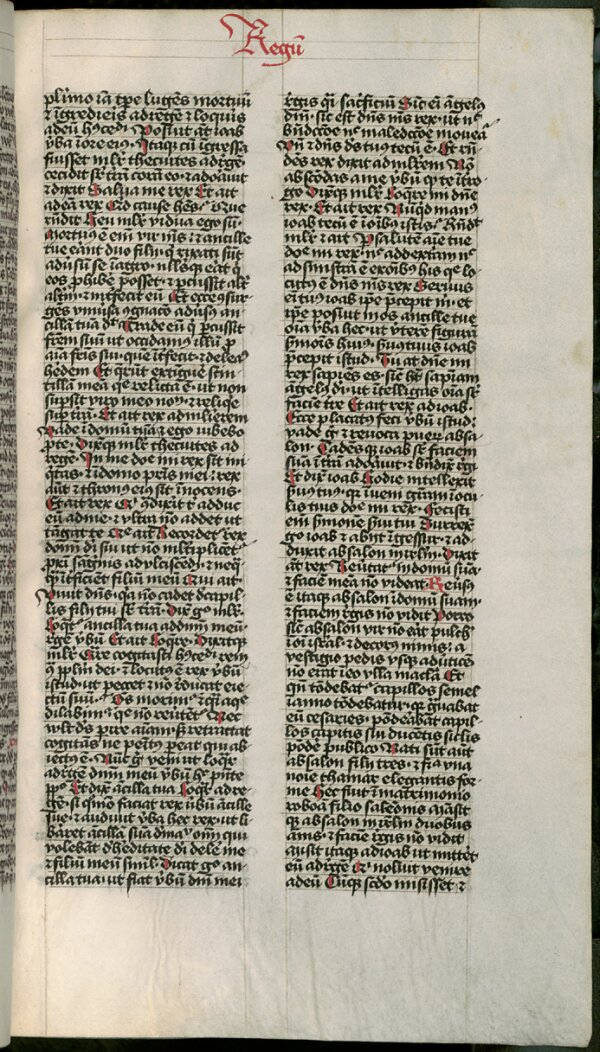 Regū
plīmo iā tpe lugēs mortuū
⁊ īgredieis ad regē ⁊ loquis
ad eū hꝰcedi Posuit āt ioab
v̄ba ī ore eiꝰ Itaqꝫ cū īgressa
fuisset ml̄r thecuites ad regē
cecidit sr̄ trā corā eo ⁊ adoāuit
⁊ dixit Salua me rex Et ait
ad eā rex Qd cause hēs Que
rn̄dit Heu ml̄r vidua ego sū
Mortuꝰ ē em̄ vir mꝰs ⁊ ancille
tue eānt duo filij q̄ rixati sūt
adūsū se ī agro nllꝰqꝫ eāt q̄
eos ꝓhibē posset ⁊ ꝑcussit alt̄
altm̄ ⁊ int̄fecit eū Et ecce ꝯsur
gēs vniūsa ꝯgnaco adūsū an
cillā tuā dt̄ Trade eū q̄ ꝑcussit
frēm suū ut occidamꝰ illū ꝓ
aīa fris sui quē īt̄fecit ⁊ deleaꝰ
hedem Et qrūt extīguē scin
tillā meā que relicta ē ut non
suꝑsit viro meo nom̄ ⁊ reliqe
suꝑ trā Et ait rex ad mlierem
Vade ī domū tuā ⁊ ego iubebo
ꝓ te Dixqꝫ ml̄r thecuites ad
regē In me dn̄e mi rex sit ini
q̄tas ⁊ ī domo pris mei rex
aūt ⁊ thronꝰ eiꝰ sit īnocens
Et ait rex Qi ꝯtdixit t̄ adduc
eū ad me ⁊ vltra nō addet ut
tāgat te Que ait Recordet̄ rex
dom̄i di sui ut nō mltiplicēt
ꝓxi sāgīnis ad vlciscēdū ⁊ neqq̄
q̄ īt̄ficiēt filiū meū Qui ait
Viuit dn̄s q̄a nō cadet d capil
lis filij tui sr̄ trā Dix̄ gō ml̄r
Loqt̄ ancilla tua ad dn̄m meū
regē v̄bū Et ait Loqre Dixitqꝫ
ml̄r Qre cogitasti hꝰcēdi rem
ꝯ̄ ppl̄m dei ⁊ locutꝰ ē rex v̄bū
istud ut peccet ⁊ nō reducat eie
ctū suū Oēs morimr̄ ⁊ q̄i aq̄e
dilabimr̄ que nō reūtēt̄ Nec
vult dꝰs ꝑire aīam sꝫ retractat
cogitās ne peīt̄ꝰ ꝑeat qui ab
iectꝰ ē Nūc g̊ veni ut loqr̄
ad regē dn̄m meū v̄bū h̄ p̄n̄te
pp̄o Et dix̄ ācilla tua Loqr̄ ad re
gē si q̄mo faciat rex v̄bū ācille
sue ⁊ audiuit v̄ba hec rex ut li
baret ācillā suā d manꝰ om̄ qui
volebāt d hēditate di dele me
⁊ filiū meū siml̄ Dicat gō an
cilla tua ut fiat v̄bū dn̄i mei
regis q̄i sacrificiū Sic ē em̄ āgelꝰ
dn̄i sic est dn̄s mꝰs rex ut nc̄
bn̄dcōe nc̄ maledcōe moueat̄
Vn̄ ⁊ dn̄s dꝰs tuꝰ tecū ē Et rn̄
dēs rex dixit ad ml̄rem Nō
abscōdas a me v̄bū q̄ te īt̄ro
go Dixqꝫ ml̄r Loqre mi dn̄e
rex Et ait rex Nūqd manꝰ
ioab tecū ē ī oībꝰ istis Rn̄dt
ml̄r ⁊ ait Per salutē aīe tue
dn̄e mi rex nc̄ ad dextam nc̄
ad sinistrā ē ex oībꝰ his que lo
cutꝰ ē dn̄s mꝰs rex Seruus
ei tuꝰ ioab ip̄e p̄cepit m̄ et
ip̄e posuit ī os ancille tue
oīa v̄ba hec ut v̄tere figurā
sm̄ois huiꝰ suꝰ tuus ioab
p̄cepit istud Tu āt dn̄e mi
rex sapiēs es sic ht̄ sapiam
āgelꝰ di ut ītelligas oīa sr̄
faciē tre Et ait rex ad ioab
Ecce placatꝰ feci v̄bū istud
vade gō ⁊ reuoca pueꝝ absa
lon Cadēsqꝫ ioab sr̄ faciem
suā ī trā adoāuit ⁊ bn̄dix̄ regi
Et dix̄ ioab Hodie intellexit
suꝰ tuꝰ qꝛ iueni grām ī ocu
lis tuis dn̄e mi rex Fecisti
em̄ sm̄onē sui tui Surrex̄
gō ioab ⁊ abijt ī gessur ⁊ ad
duxit absalon ī irlm̄ Dixit
āt rex Reūtat̄ ī domū suā
⁊ faciē meā nō videat Reūsꝰ
ē itaqꝫ absalon ī domū suam
⁊ faciem regis nō vidit Porro
sic absalon vir nō eāt pulch̄
ī oī isral ⁊ decorꝰ nimis a
vestigio pedis vsqꝫ ad ūticē
nō erat ī eo vlla macla Et
qn̄ tōdebat̄ capillos semel
ī anno tōdebatur qꝛ gūabat
eū cesaries pōdeābat capil
los capitis sui ducētis siclis
pōdē publico Nati sūt āut
absalon filij tres ⁊ fia vna
noīe thamar elegantis for
me Hec fuit ī matrimonio
roboā filio salomōis Māsit
qꝫ absalon ī irlm̄ duobus
ānis ⁊ faciē regis nō vidit
Misit itaqꝫ ad ioab ut mittēt
eū ad regē Qi noluit venire
ad eū Cūqꝫ scdo misisset ⁊